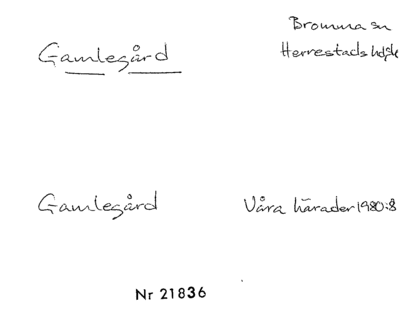 Bromma sn
Gamlegård
Herrestads hd, Sk
Gamlegård
Våra härader 1980:8
Nr 21836